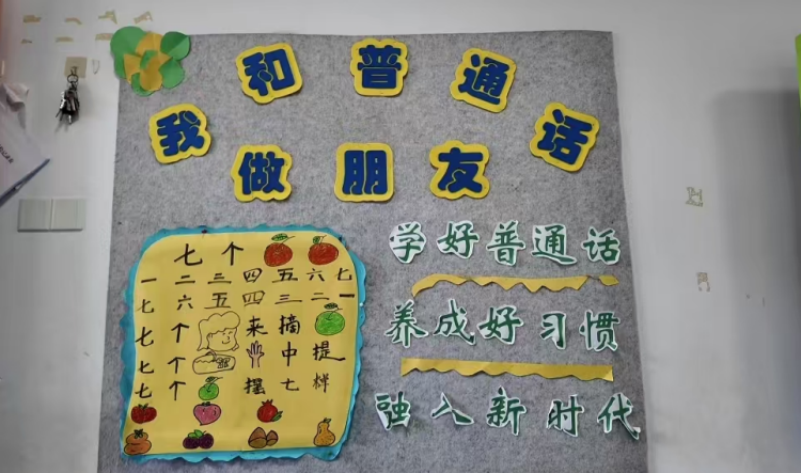 我和普通话
做朋友
七个
一二三四五六七
七六五四三二一
七个来摘
七个中提
七个摆七样
学好普通话
养成好习惯
融入新时代